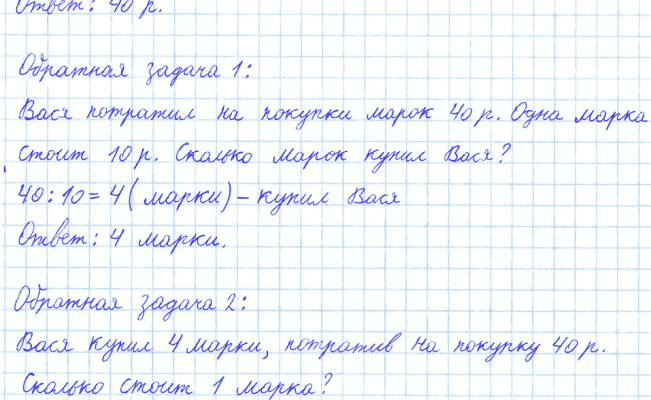 Ответ: 40 р.
Обратная задача 1:
Вася потратил на покупки марок 40 р. Одна марка
стоит 10 р. Сколько марок купил Вася?
40 : 10 = 4 ( марки) – купил Вася
Ответ: 4 марки.
Обратная задача 2:
Вася купил 4 марки, потратив на покупку 40 р.
Сколько стоит 1 марка?